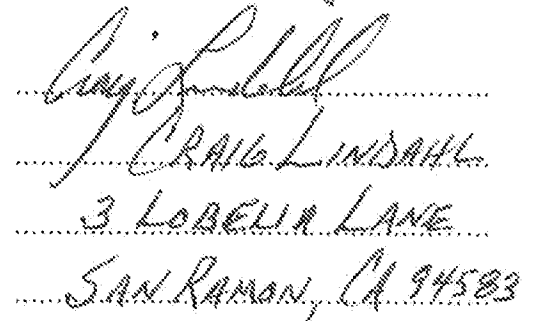 Craig Lindahl
CRAIG LINDAHL
3 LOBELIA LANE
SAN RAMON, CA 94583